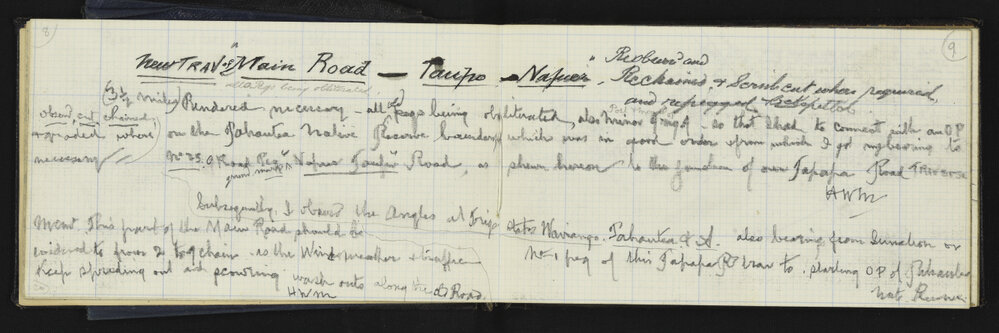 8
9
New TRAV of "Main Road — Taupo — Napier" Reobserved and
Rechained, & Scrub cut where required,
and repegged &
always being obliterated
(3½ miles) Rendered necessary — all pegs being obliterated, also Minor Trig A — so that I had to connect with an OP
observed cut chained,
on the Pahautea Native Reserve boundary which was in good order & from which I got my bearing to
& graded where
necessary
No 25. of Road Peg Napier Taupo Road, as shewn hereon to the junction of our Tapapa Road TRAVERSE
ground mark
HWM
Subsequently I observed the Angles at Trig Statns Wairango. Pahautea & A. also bearing from Junction or
No 1 peg of this Tapapa Rd trav to starting OP of Pahautea
Nate Reserve
Memo. This part of the Main Road should be
widened to from 2 to chain as the Winter weather & traffic
keep spreading out and scouring wash outs along the old Road.
HWM